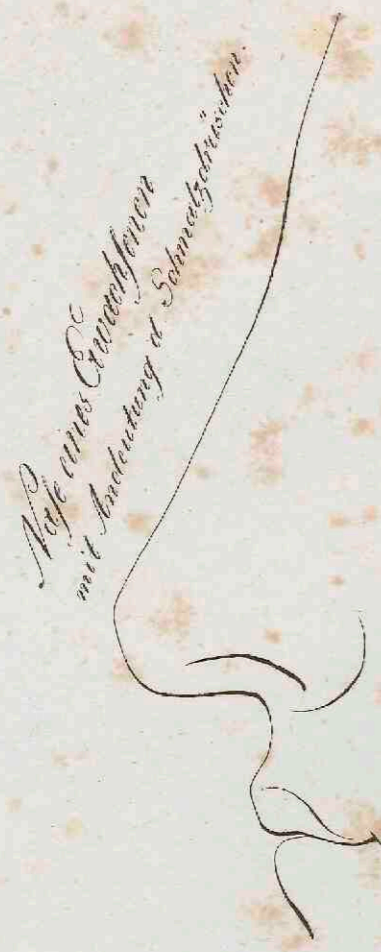 Nase eines Erwachsenen
mit Andeutung d Schmalzdrüschen.